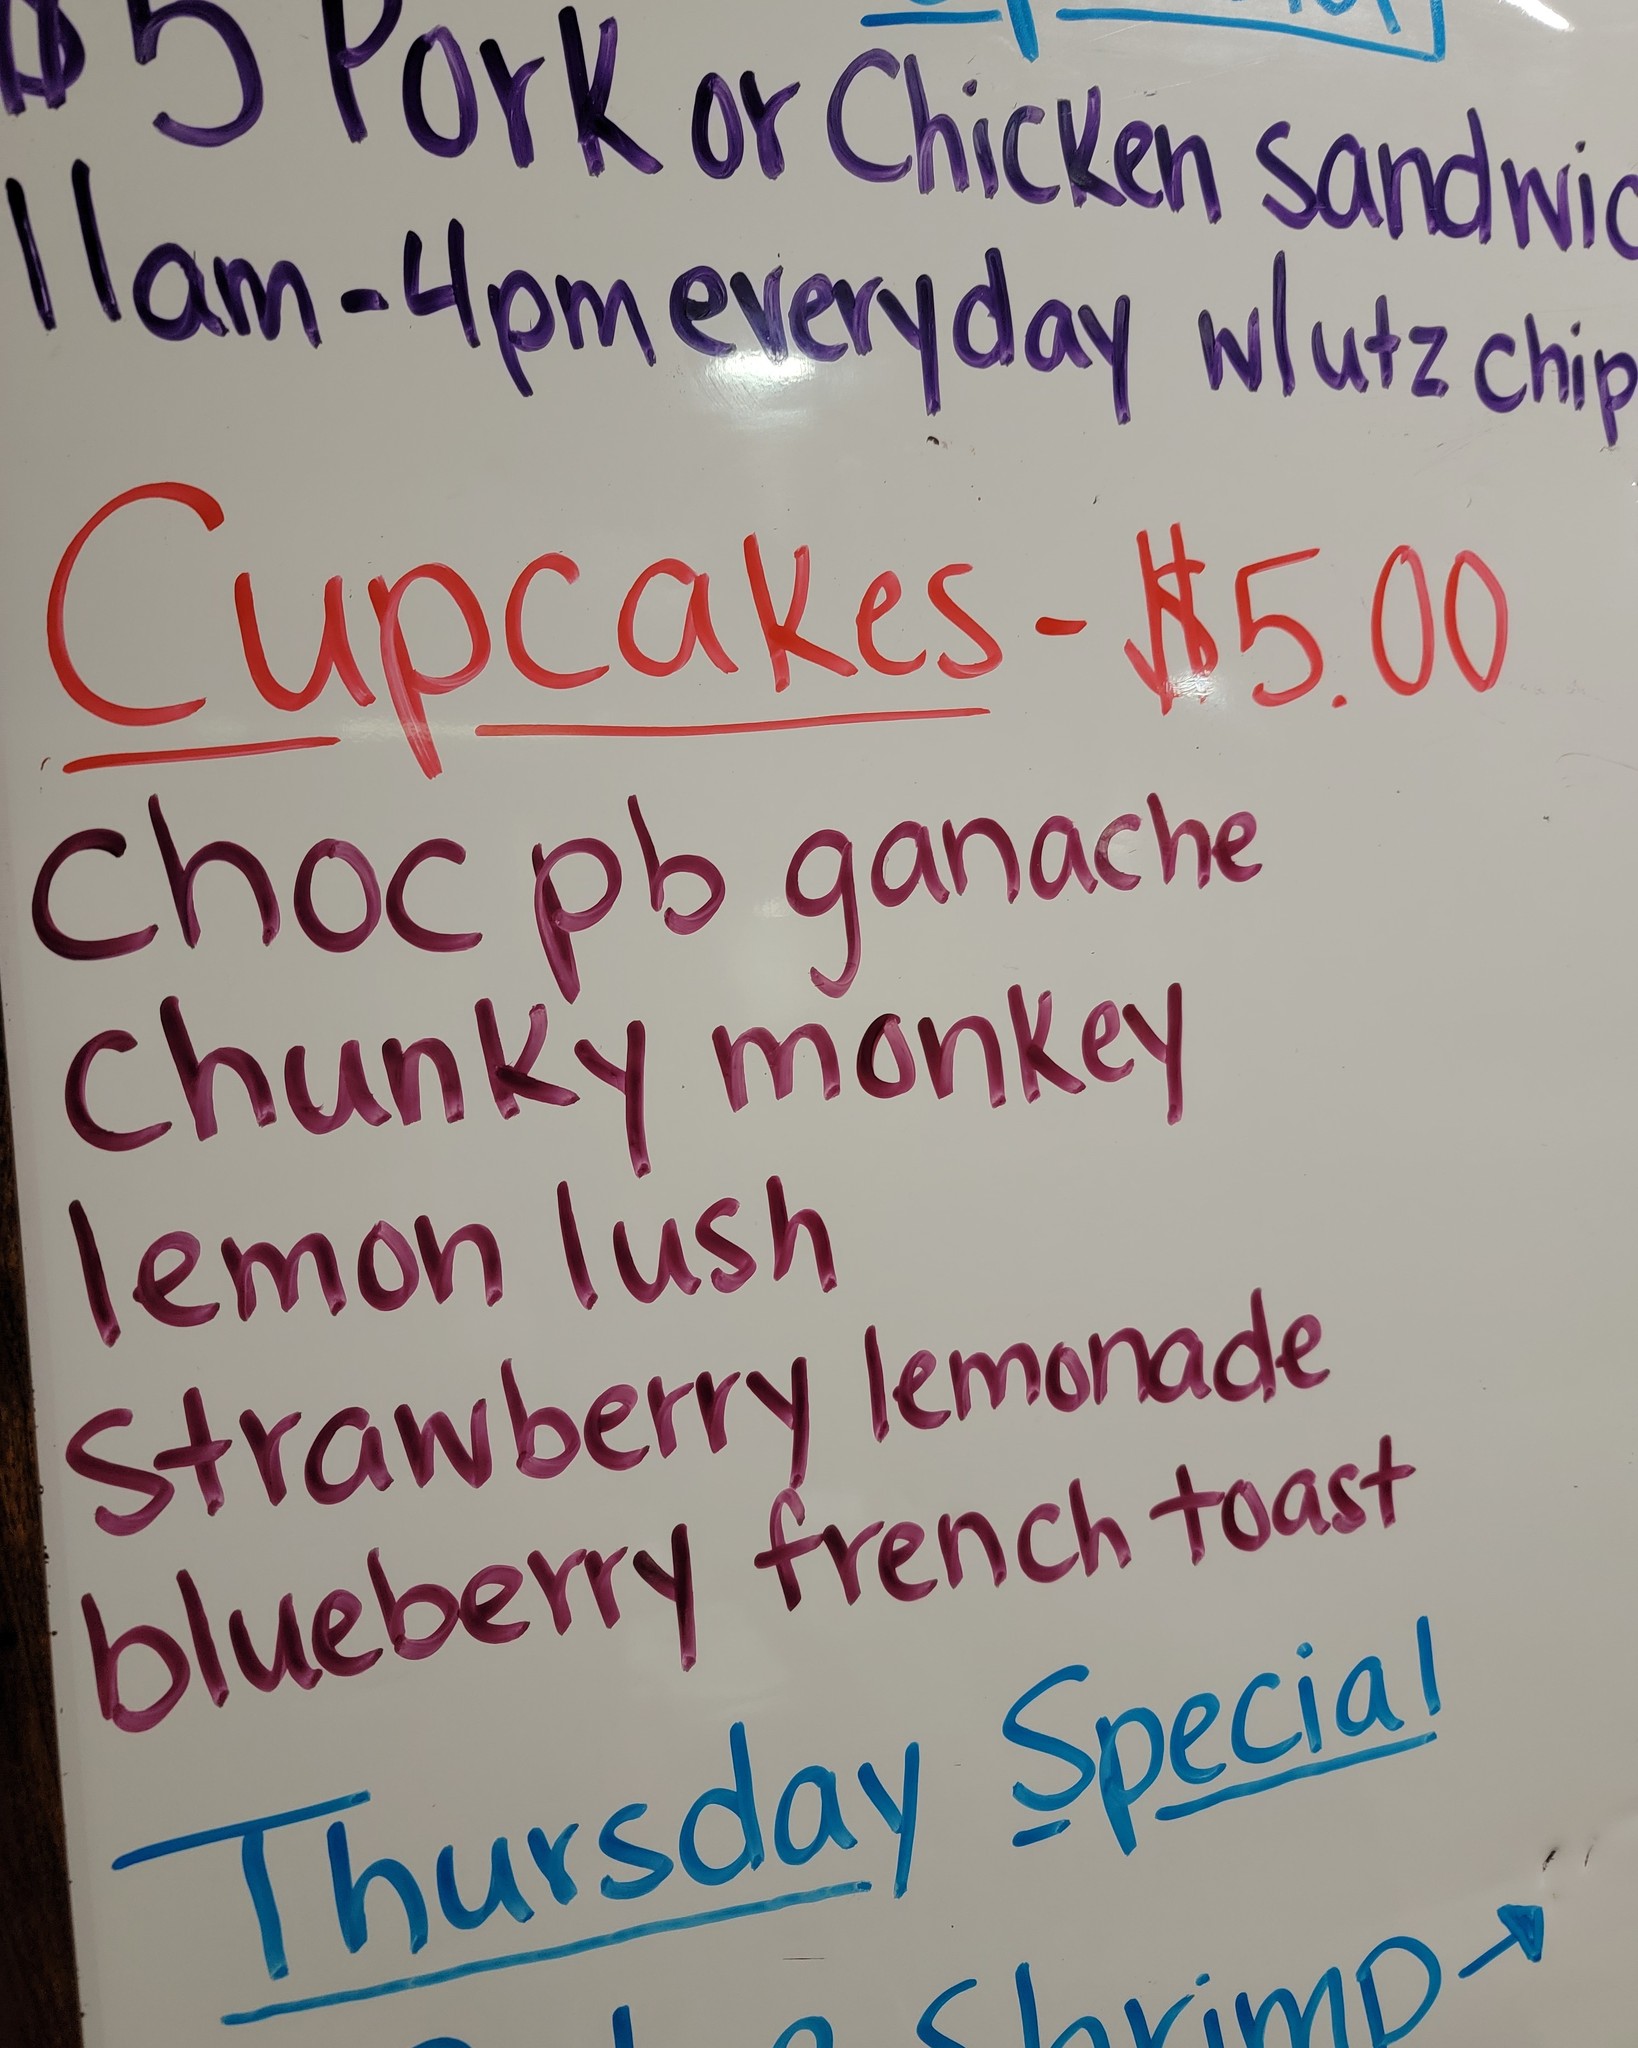 $5 Pork or Chicken sandwic
11am-4pm everyday w/utz chip
Cupcakes - $5.00
choc pb ganache
chunky monkey
lemon lush
strawberry lemonade
blueberry french toast
Thursday Special
Shrimp →